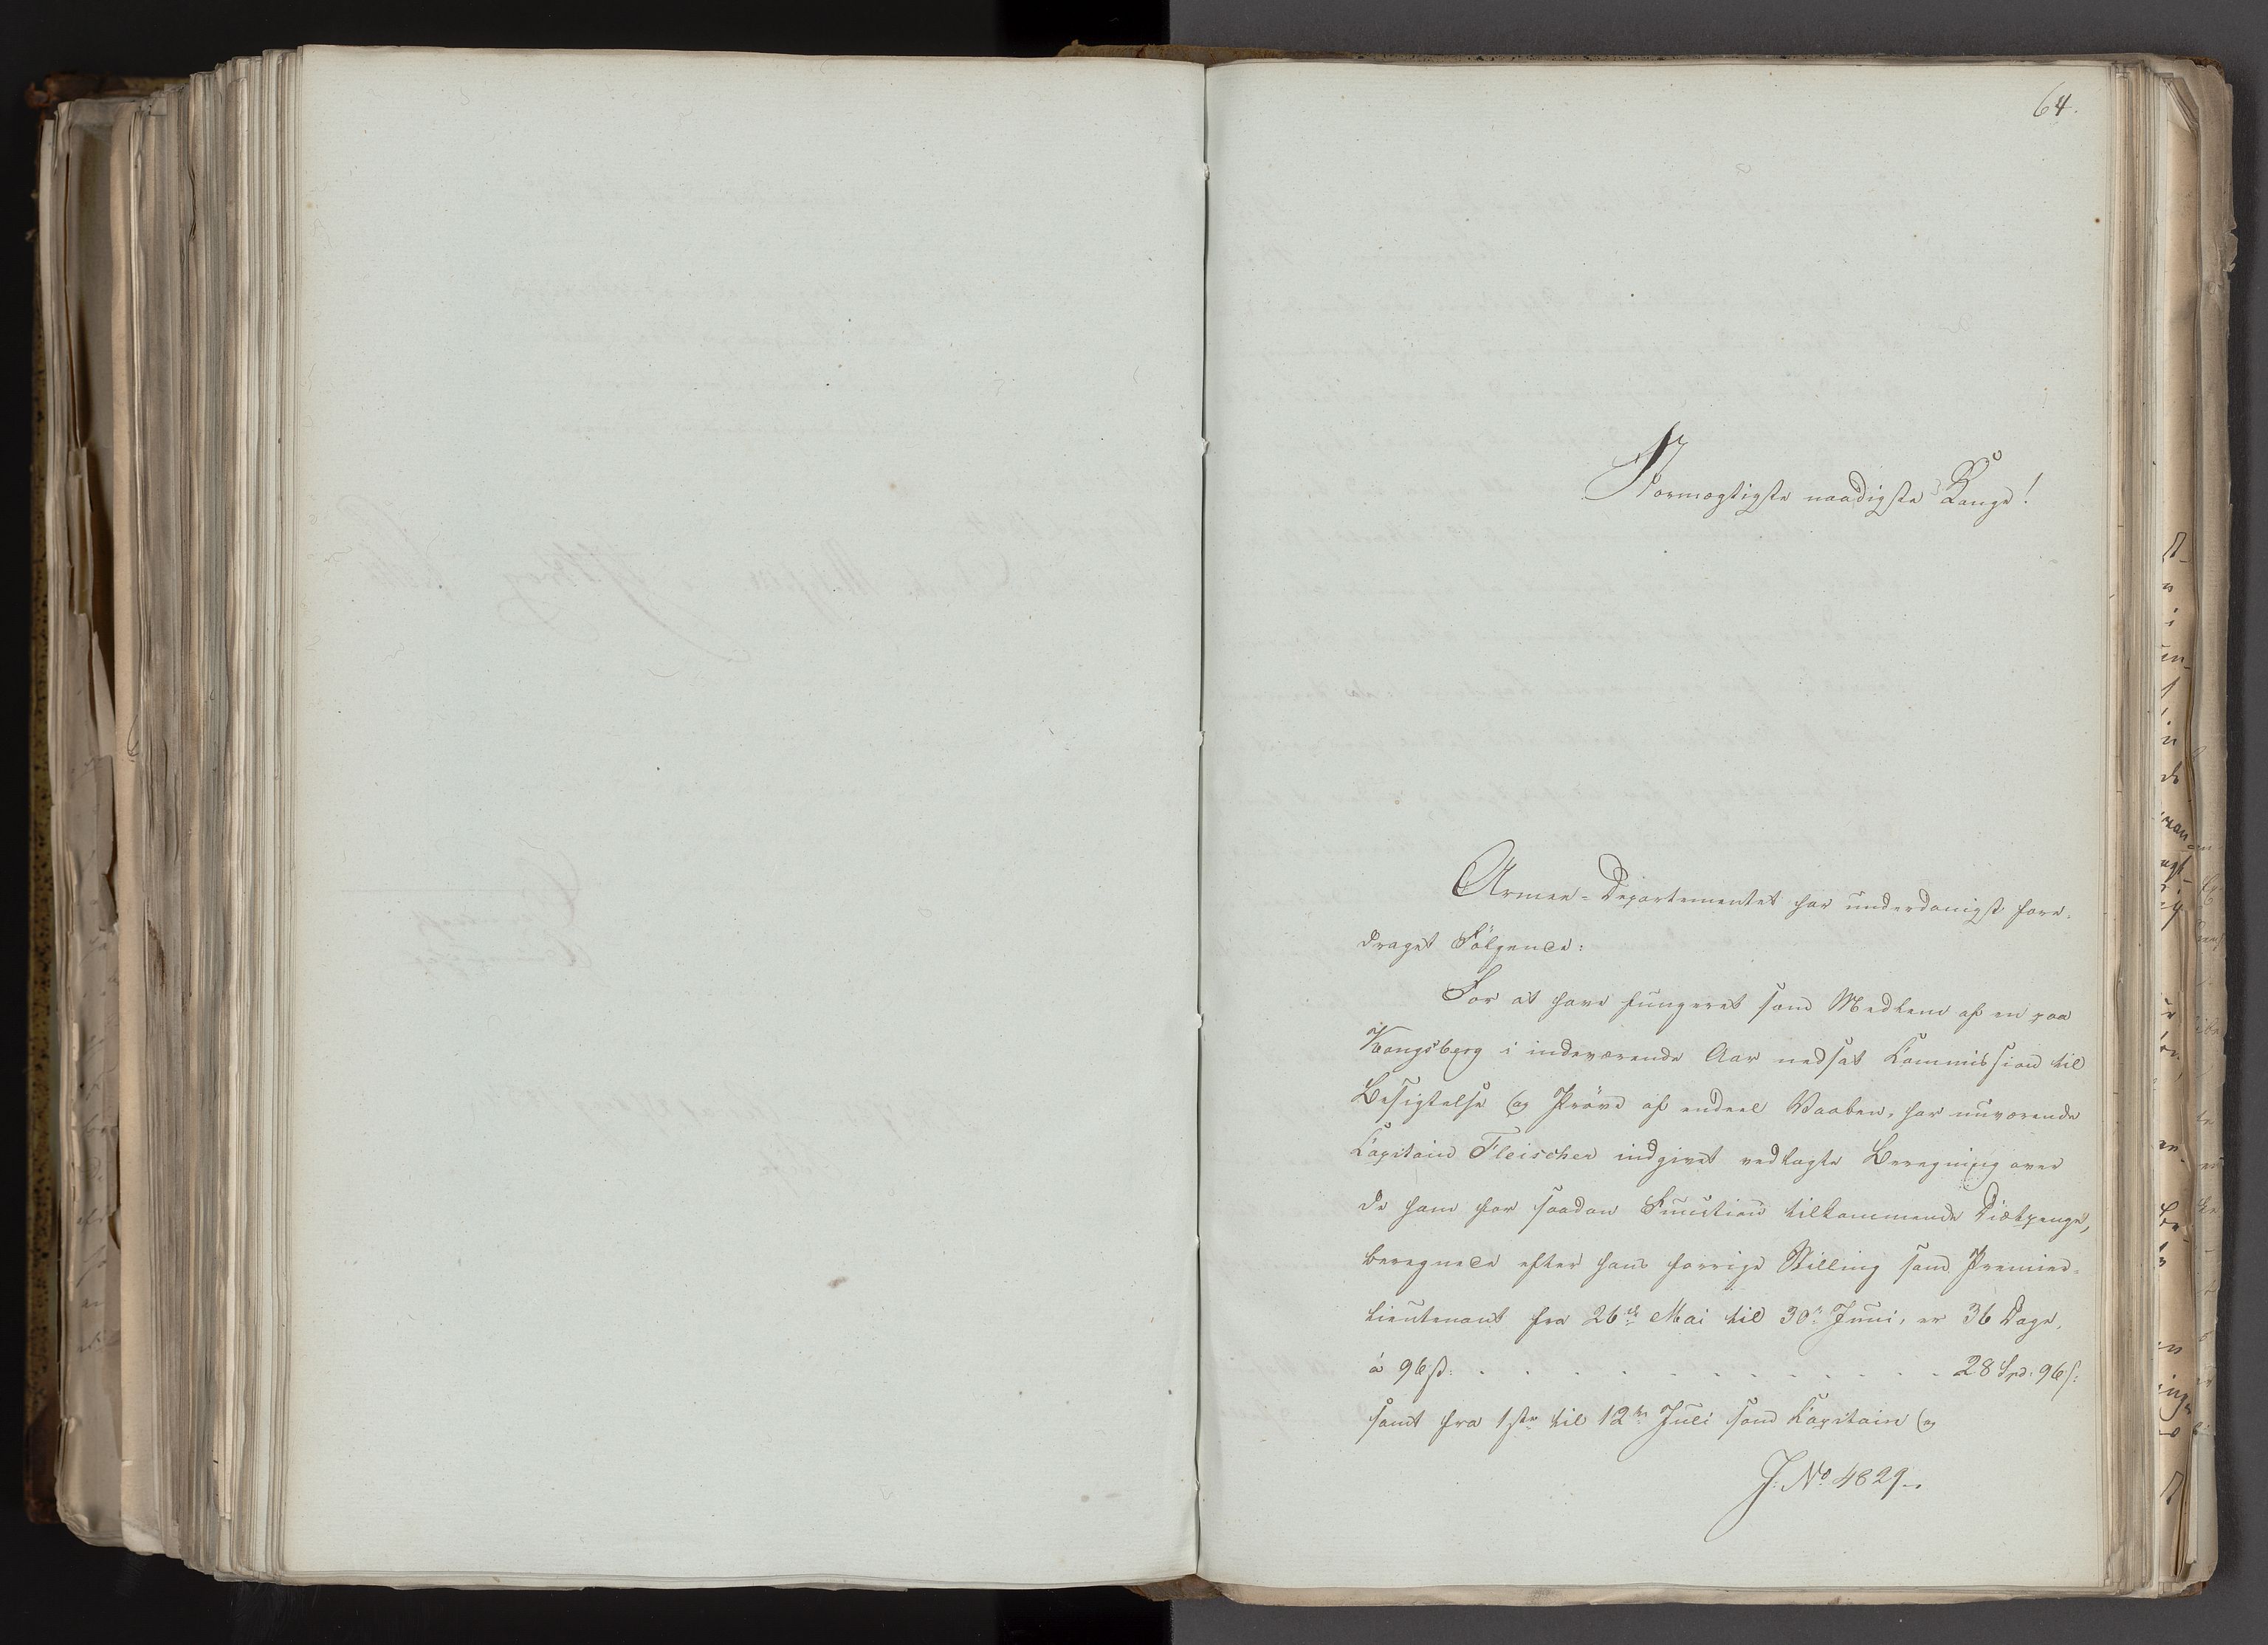 64.
Stormægtigste naadigste Konge!
Armee-Departementet har underdanigst fore-
draget Følgende:
For at have fungeret som Medlem af en paa
Kongsberg i indeværende Aar nedsat Commission til
Besigtelse og Prøve af endeel Vaaben, har nuværende
Capitain Fleischer indgivet vedlagte Beregning over
de ham for saadan Function tilkommende Diætpenge,
beregnede efter hans forrige Stilling som Premier-
lieutenant fra 26de Mai til 30te Juni, er 36 Dage,
à 96 ß: . . . . . . . . . . . . 28 Spd: 96 ß:
samt fra 1ste til 12te Juli som Capitain og
J. No 4829.